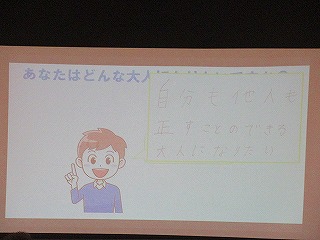 あなたはどんな大人
自分も他人も
正すことのできる
大人になりたい